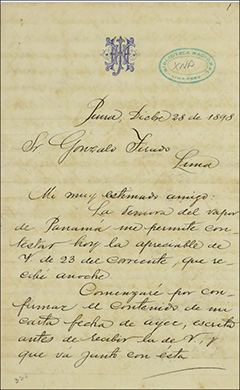 BIBLIOTECA NACIONAL
XNP
LIMA-PERU
Piura, Dicbe 28 de 1898
Sr Gonzalo
Lima
Mi muy estimado amigo:
La demora del vapor
de Panamá me permite con-
testar hoy la apreciable de
V. de 23 del corriente, que re-
cibí anoche
Comenzaré por con-
firmar el contenido de mi
carta fecha de ayer, escrita
antes de recibir la de V. y
que va junto con esta